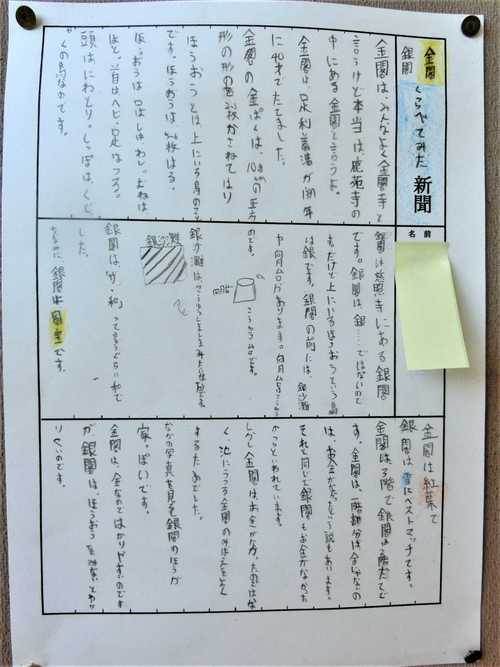 金閣
銀閣
くらべてみた 新聞
名前
金閣は、みんなよく金閣寺と
言うけど本当は鹿苑寺の
中にある金閣と言うよ。
金閣は足利義満が
に40才でたてました。
金閣の金ぱくは、10.8cmの正方
形の形の金を2枚かさねてはり
です。ほうおうは5〜6枚はる。
ほうおうとは上にいる鳥の
ほうおうは口はしゅわし。むねは
ほど。首はヘビ、足はつる。
頭はにわとり。しっぽは、くじ
くの鳥なかです。
銀閣は慈照寺にある銀閣
です。銀閣は、銀……ではないので
す。だけど上にいるほうおうという鳥
は銀です。銀閣の前には、銀沙灘
や向月台があります。向月台は、こう
こういう台です。
のです。
向月台
銀沙灘
銀沙灘は、
銀閣は「わ、和」って言うぐらい和で
した。
なのに銀閣は国宝です。
金閣は紅葉で
銀閣は雪にベストマッチです。
金閣は3階で銀閣は2階だてで
す。金閣は、一階部分は金じゃないの
は、お金がなかったという説もあります。
それと同じで銀閣もお金がなかった
からといわれています。
しかし金閣は、お金がなかったのではな
く、池にうつる金閣の
するためでした。
なかの写真を見ると銀閣のほうが
家っぽいです。
金閣は、金なのではかりやすいのです
が、銀閣は、ほうおう
りくいのです。